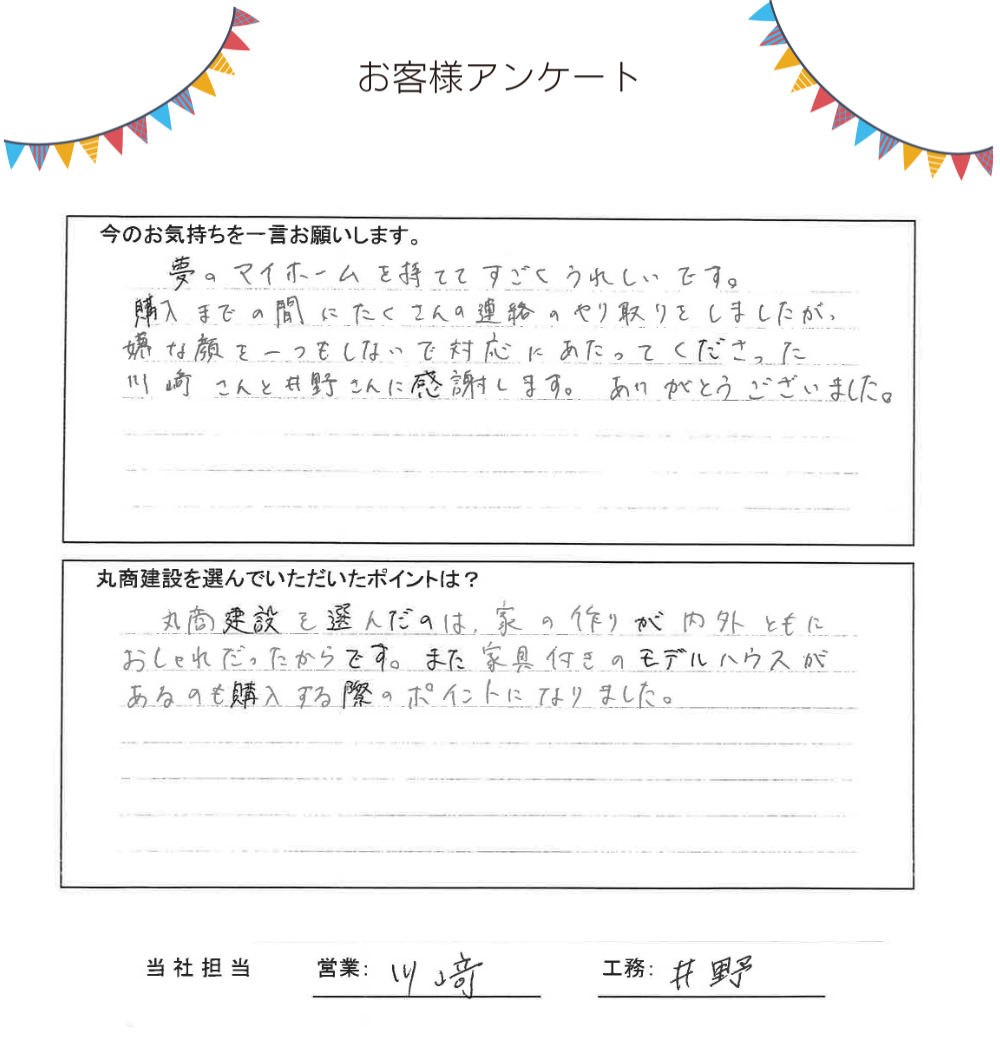 お客様アンケート
今のお気持ちを一言お願いします。
夢のマイホームを持ててすごくうれしいです。
購入までの間にたくさんの連絡のやり取りをしましたが、
嫌な顔を一つもしないで対応にあたってくださった
川﨑さんと井野さんに感謝します。ありがとうございました。
丸商建設を選んでいただいたポイントは？
丸商建設を選んだのは、家の作りが内外ともに
おしゃれだったからです。また家具付きのモデルハウスが
あるのも購入する際のポイントになりました。
当社担当 営業: 川﨑 工務: 井野